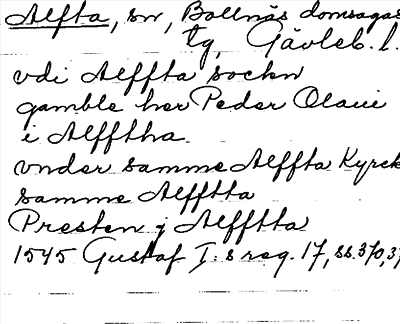 Alfta, sn, Bollnäs domsagas
tg, Gävleb. l.
vdi Alffta sockn
gamble her Peder Olaui
i Alfftha
vnder samme Alffta Kyrck
samme Alfftta
Presten j Alfftta
1545 Gustaf I:s reg. 17, ss. 370, 37